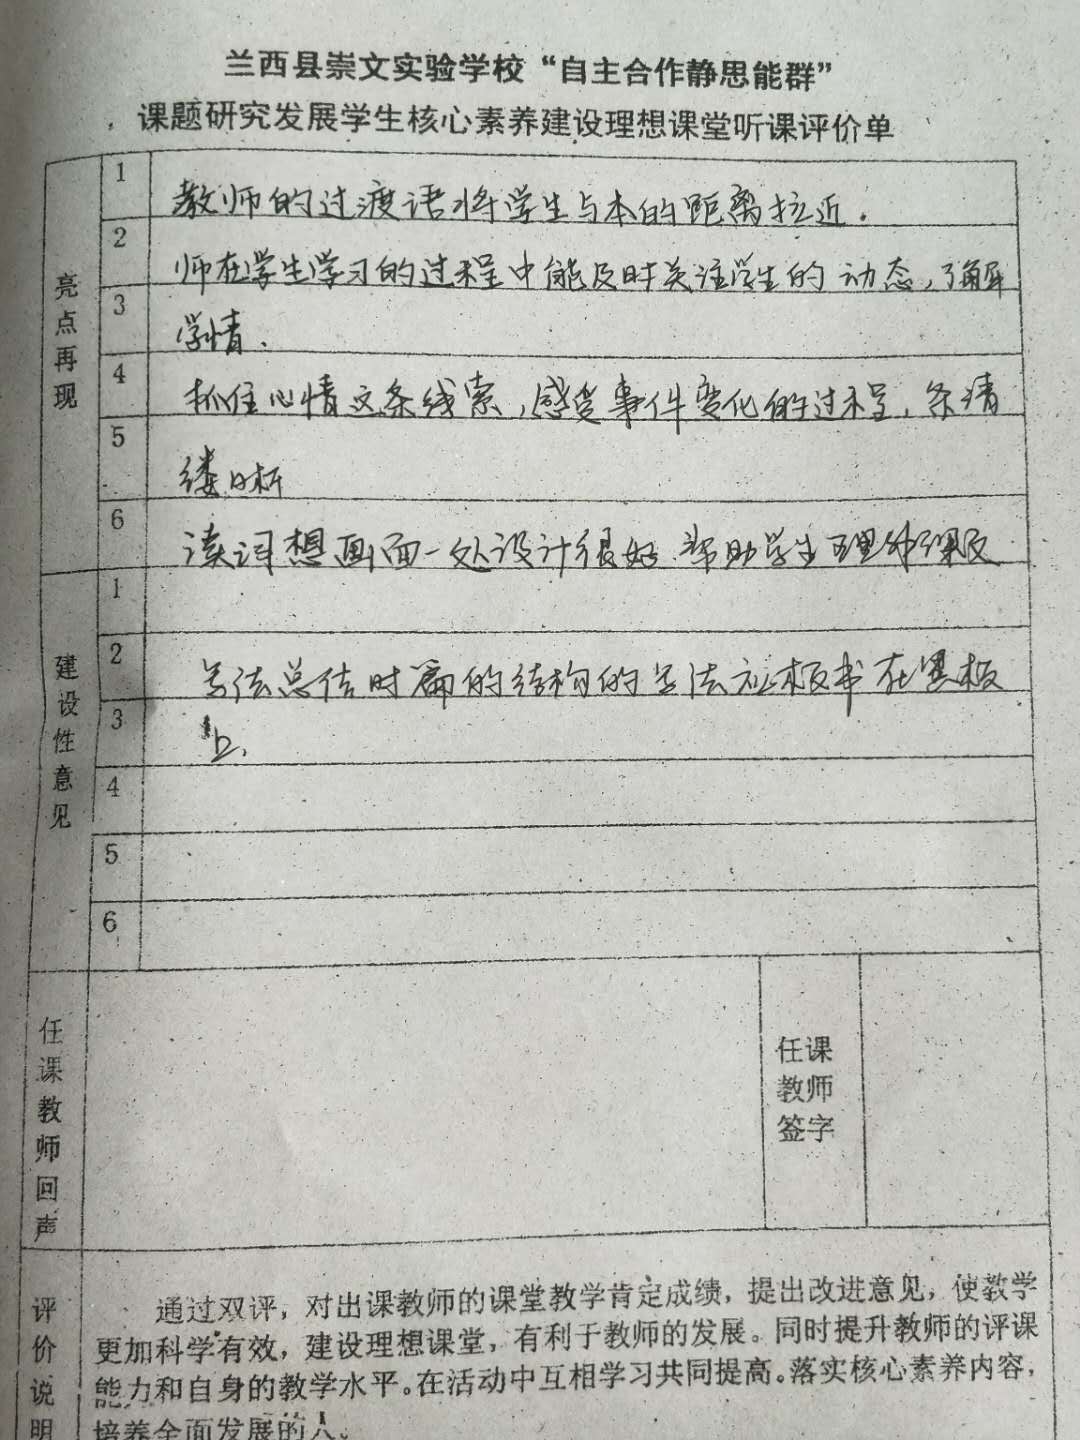 兰西县崇文实验学校“自主合作静思能群”
课题研究发展学生核心素养建设理想课堂听课评价单
亮点再现
1 教师的过渡语将学生与本的距离拉近.
2 师在学生学习的过程中能及时关注学生的动态,了解
3 学情.
4 抓住心情这条线索,感受事件变化的过程,条清
5 缕晰
6 读词想画面一处设计很好.帮助学生理解课文
建设性意见
1
2 写法总结时篇的结构的写法应板书在黑板
3 上.
4
5
6
任课教师回声
任课
教师
签字
评价说明
通过双评，对出课教师的课堂教学肯定成绩，提出改进意见，使教学
更加科学有效，建设理想课堂，有利于教师的发展。同时提升教师的评课
能力和自身的教学水平。在活动中互相学习共同提高。落实核心素养内容，
培养全面发展的人。